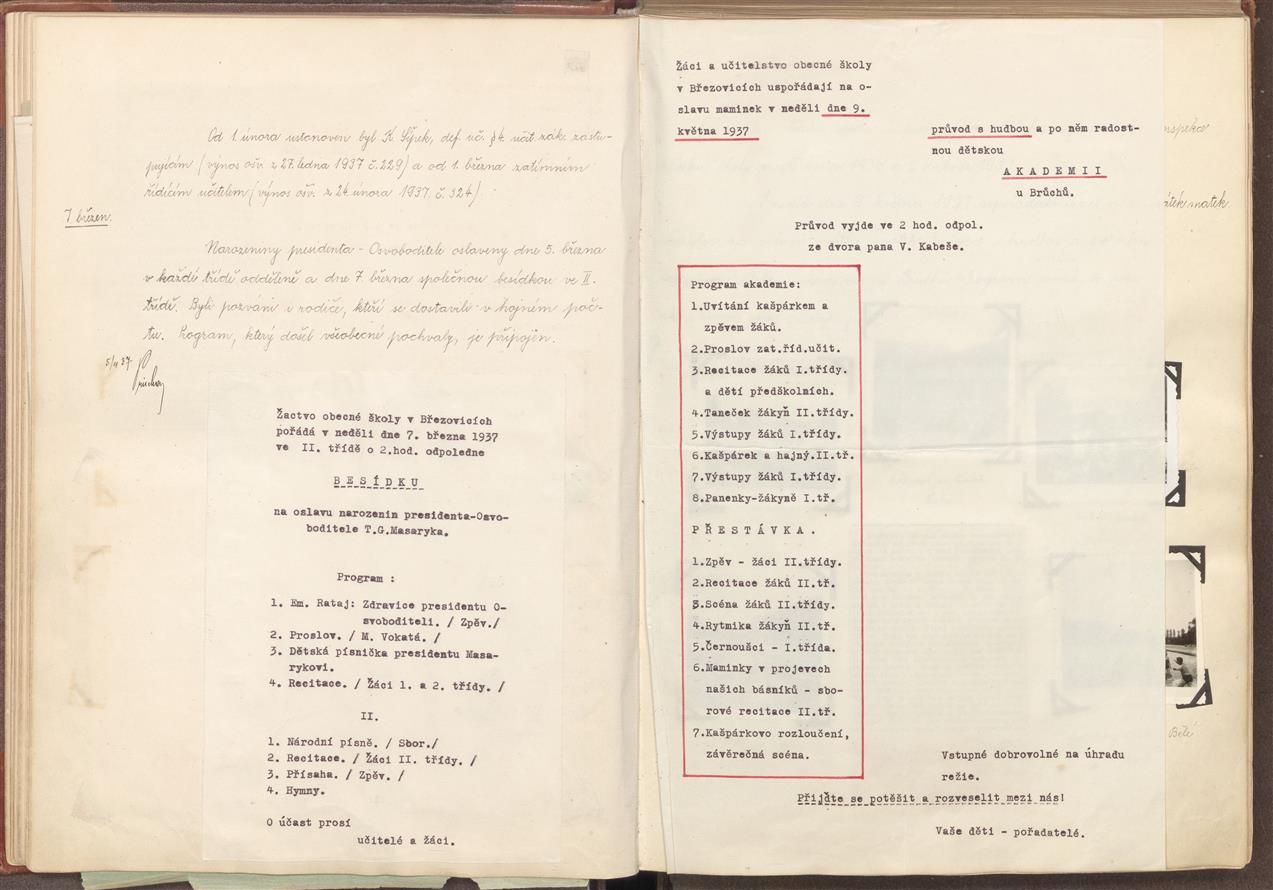 Od 1. února ustanoven byl K. def. uč. § 4. učit. zák. zastu-
pujícím (výnos ošv. z 27. ledna 1937 č. 229) a od 1. března zatímním
řídícím učitelem (výnos ošv. z 24. února 1937 č. 324)
7. březen.
Narozeniny presidenta - Osvoboditele oslaveny dne 5. března
v každé třídě odděleně a dne 7. března společnou besídkou ve II.
třídě. Byli pozváni i rodiče, kteří se dostavili v hojném poč-
tu. Program, který došel všeobecné pochvaly, je připojen.
5/4 37
Žactvo obecné školy v Březovicích
pořádá v neděli dne 7. března 1937
ve II. třídě o 2.hod. odpoledne
BESÍDKU
na oslavu narozenin presidenta-Osvo-
boditele T.G.Masaryka.
Program :
1. Em. Rataj: Zdravice presidentu O-
svoboditeli. / Zpěv./
2. Proslov. / M. Vokatá. /
3. Dětská písnička presidentu Masa-
rykovi.
4. Recitace. / Žáci 1. a 2. třídy. /
II.
1. Národní písně. / Sbor./
2. Recitace. / Žáci II. třídy. /
3. Přísaha. / Zpěv. /
4. Hymny.
O účast prosí
učitelé a žáci.
Žáci a učitelstvo obecné školy
v Březovicích uspořádají na o-
slavu maminek v neděli dne 9.
května 1937
průvod s hudbou a po něm radost-
nou dětskou
AKADEMII
u Brůchů.
Průvod vyjde ve 2 hod. odpol.
ze dvora pana V. Kabeše.
Program akademie:
1.Uvítání kašpárkem a
zpěvem žáků.
2.Proslov zat.říd.učit.
3.Recitace žáků I.třídy.
a dětí předškolních.
4.Taneček žákyň II.třídy.
5.Výstupy žáků I.třídy.
6.Kašpárek a hajný.II.tř.
7.Výstupy žáků I.třídy.
8.Panenky-žákyně I.tř.
PŘESTÁVKA.
1.Zpěv - žáci II.třídy.
2.Recitace žáků II.tř.
3.Scéna žáků II.třídy.
4.Rytmika žákyň II.tř.
5.Černoušci - I.třída.
6.Maminky v projevech
našich básníků - sbo-
rové recitace II.tř.
7.Kašpárkovo rozloučení,
závěrečná scéna.
Vstupné dobrovolné na úhradu
režie.
Přijďte se potěšit a rozveselit mezi nás!
Vaše děti - pořadatelé.
matek.